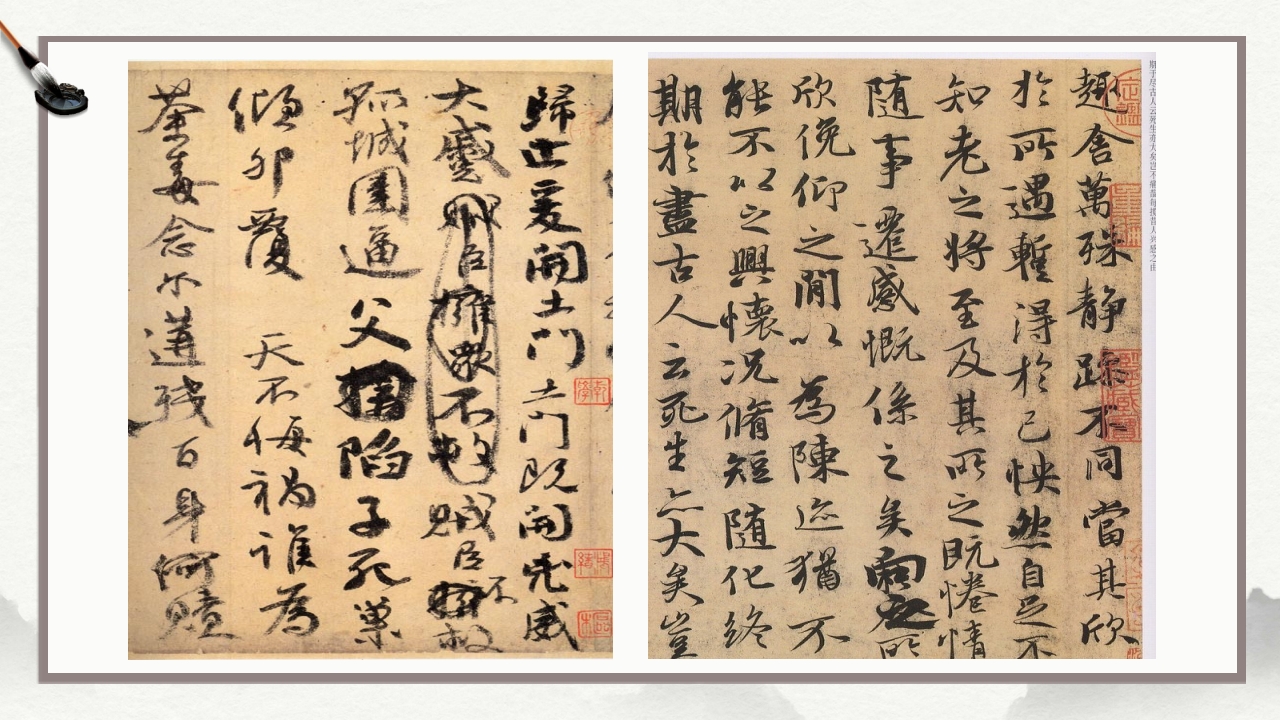 歸止爰開土門土門既開凶威
大蹙賊臣擁眾不救賊臣不救
孤城圍逼父陷子死巢
傾卵覆 天不悔禍誰為
荼毒念爾遘殘百身何贖
期于尽古人云死生亦大矣岂不痛哉每揽昔人兴感之由
趣舍萬殊静躁不同當其欣
於所遇暫得於己怏然自足不
知老之將至及其所之既惓情
隨事遷感慨係之矣向之所
欣俛仰之閒以為陳迹猶不
能不以之興懷况脩短隨化終
期於盡古人云死生亦大矣豈